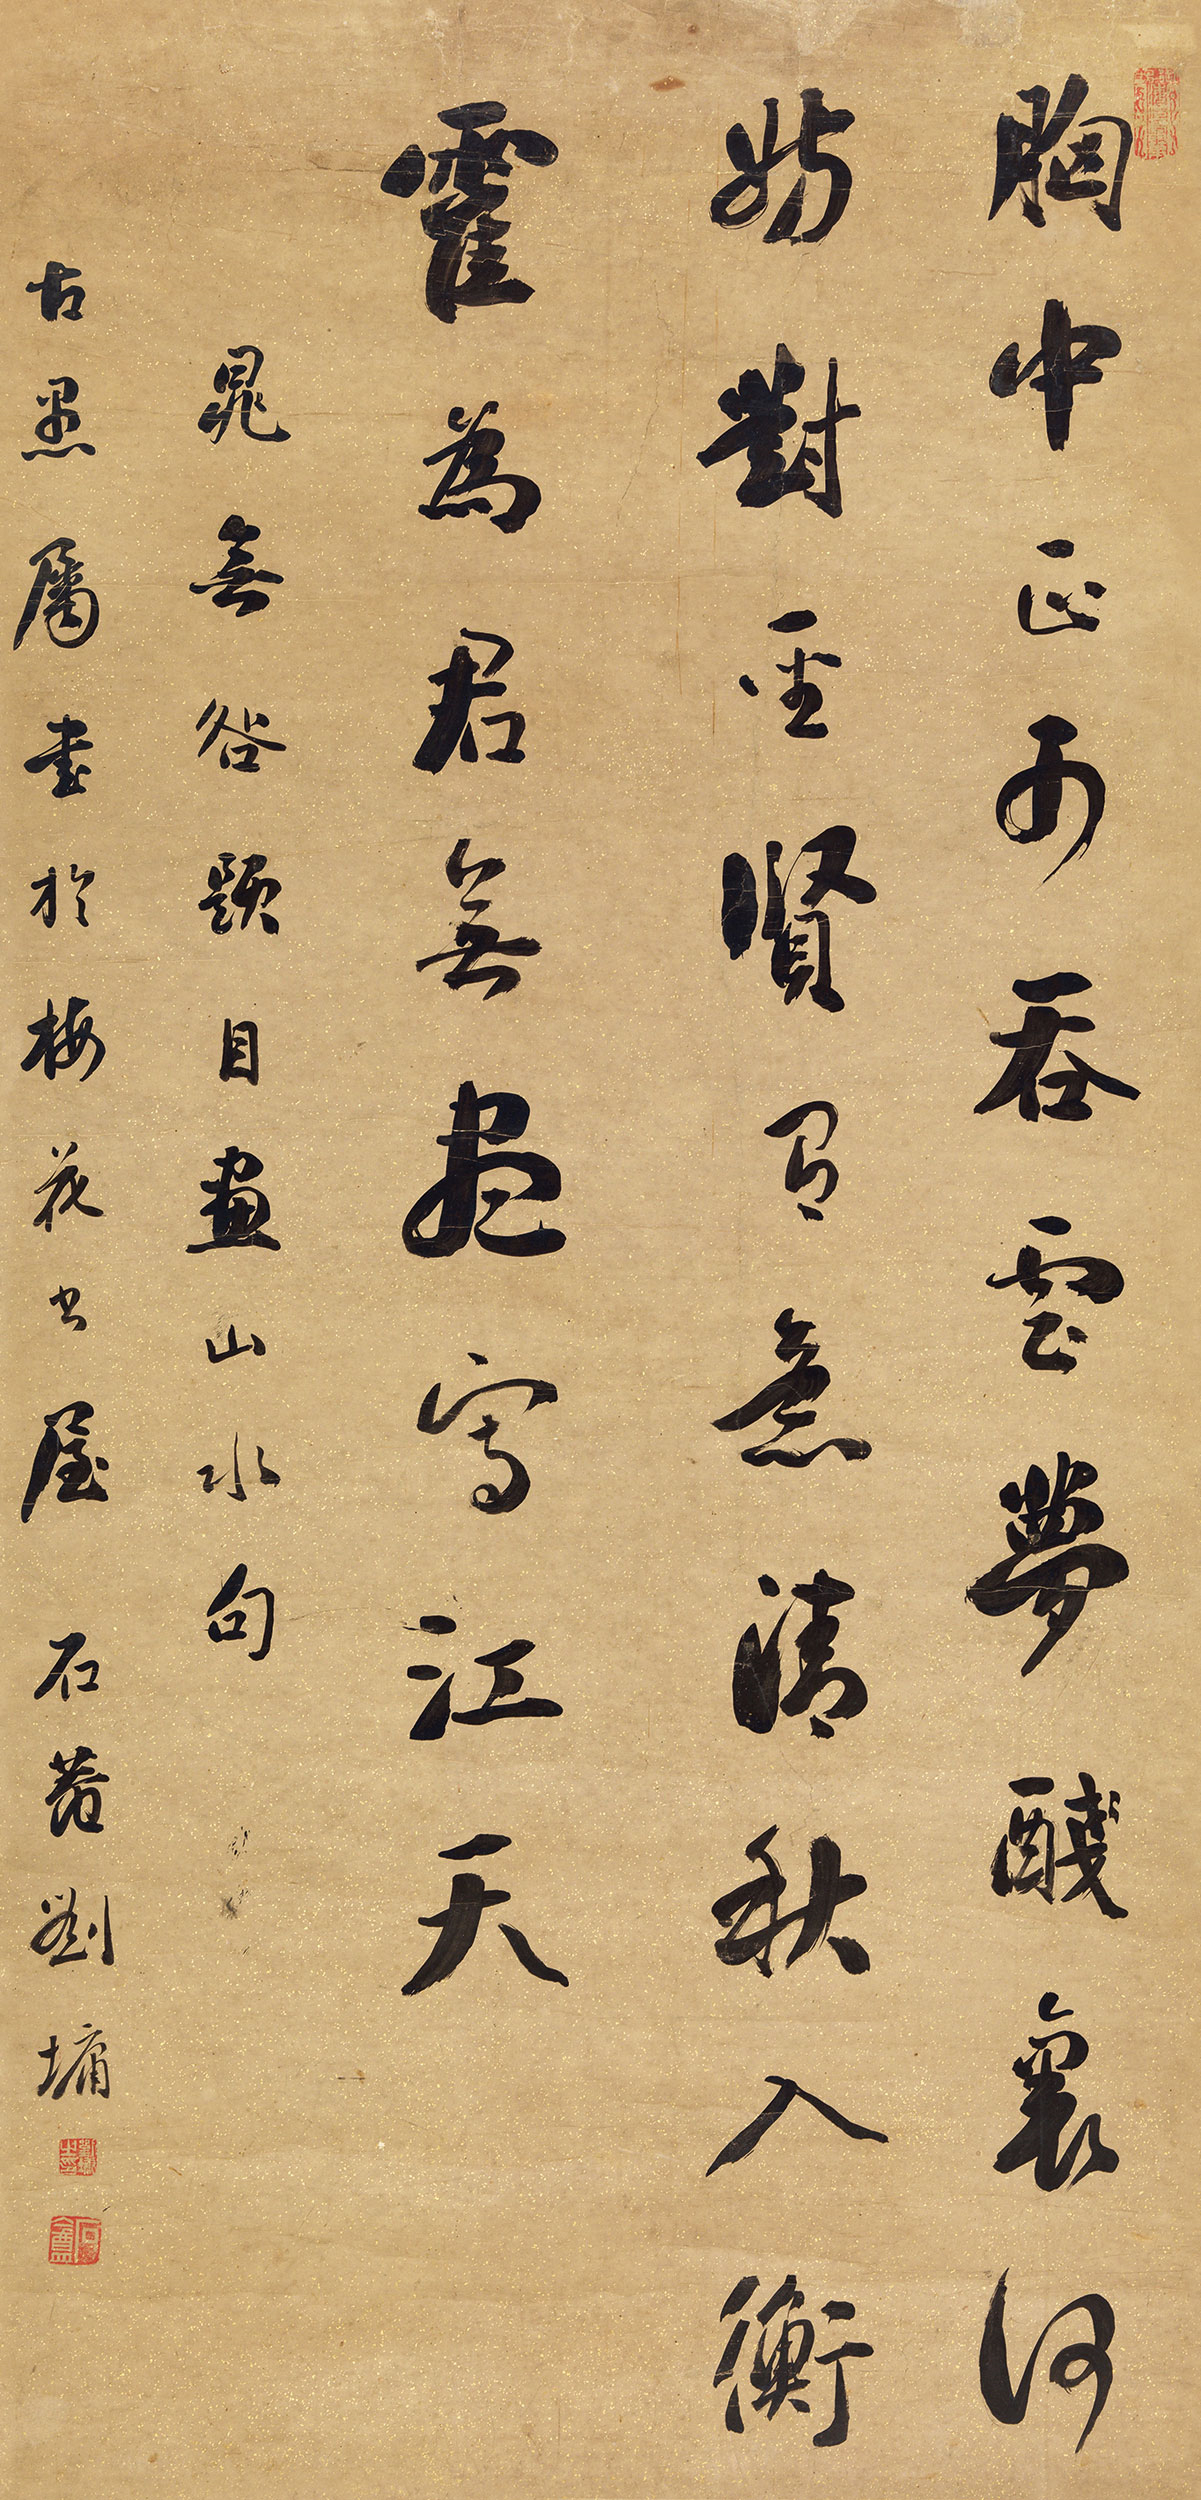 胸中正可吞雲夢醆裏何
妨對聖賢有意清秋入衡
霍為君無盡寫江天
晁無咎題目畫山水句
古愚屬書於梅花書屋 石菴劉墉